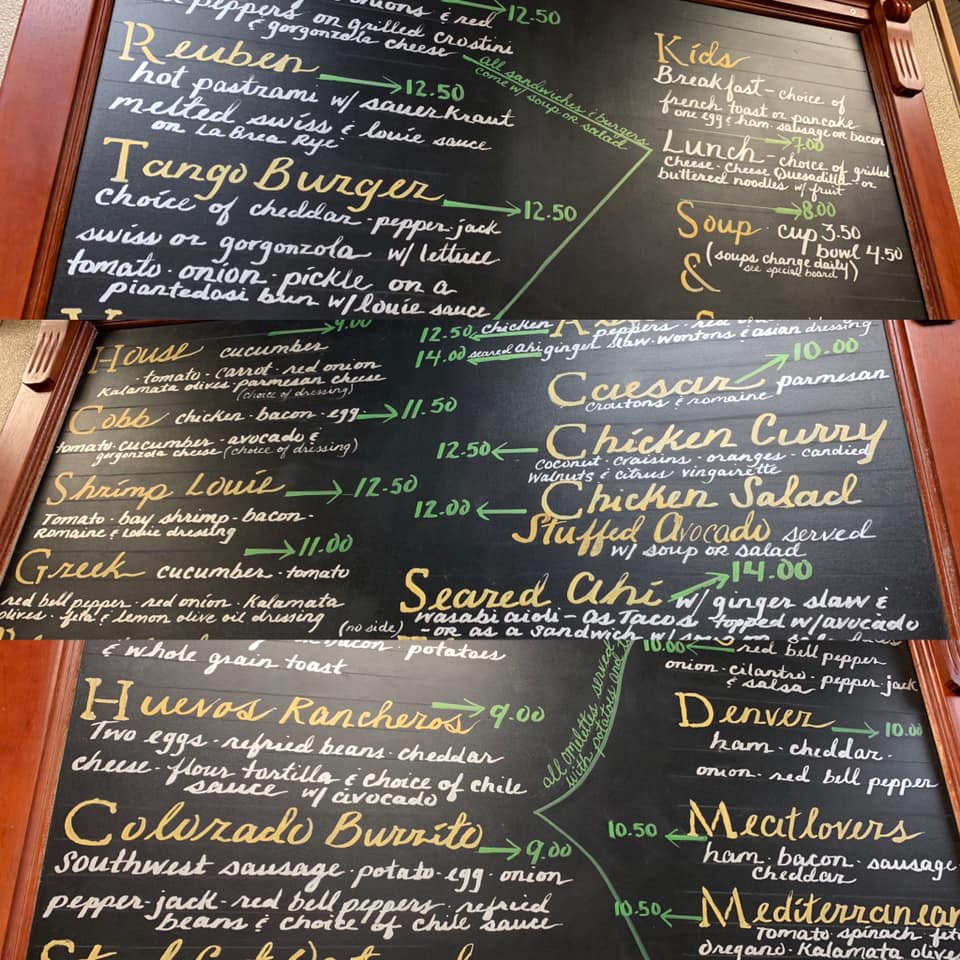 peppers on grilled crostini
& gorgonzola cheese
→ 12.50
Reuben → 12.50
hot pastrami w/ sauerkraut
melted swiss & louie sauce
on La Brea Rye
Tango Burger → 12.50
choice of cheddar · pepper jack
swiss or gorgonzola w/ lettuce
tomato · onion · pickle on a
piantedosi bun w/ louie sauce
all sandwiches & burgers
come w/ soup or salad
Kids
Breakfast - choice of
french toast or pancake
one egg & ham · sausage or bacon
→ 7.00
Lunch - choice of grilled
cheese - Cheese Quesadilla - or
buttered noodles w/ fruit
→ 8.00
Soup · cup 3.50
bowl 4.50
(soups change daily)
see special board
&
→ 9.00
House cucumber
· tomato · carrot · red onion
Kalamata olives · parmesan cheese
(choice of dressing)
Cobb chicken · bacon · egg → 11.50
tomato · cucumber · avocado &
gorgonzola cheese (choice of dressing)
Shrimp Louie → 12.50
Tomato · bay shrimp · bacon ·
Romaine & Louie dressing
→ 11.00
Greek cucumber · tomato
red bell pepper · red onion · Kalamata
olives · feta & lemon olive oil dressing
(no side)
12.50 ← chicken
14.00 ← seared ahi
peppers
ginger slaw · wontons & asian dressing
Caesar → 10.00
parmesan
croutons & romaine
Chicken Curry
12.50 ←
coconut · craisins · oranges · candied
walnuts & citrus vingairette
Chicken Salad
12.00 ←
Stuffed Avocado served
w/ soup or salad
Seared Ahi → 14.00
w/ ginger slaw &
wasabi aioli - as Tacos topped w/ avocado
- or as a sandwich w/
bacon · potatoes
& whole grain toast
Huevos Rancheros → 9.00
Two eggs · refried beans · cheddar
cheese · flour tortilla & choice of chile
sauce w/ avocado
Colorado Burrito → 9.00
southwest sausage · potato · egg · onion
pepper-jack · red bell peppers · refried
beans & choice of chile sauce
all omelettes served
with potatoes and
10.00 ← red bell pepper
onion · cilantro · pepper jack
& salsa
Denver → 10.00
ham · cheddar ·
onion · red bell pepper
10.50 ← Meatlovers
ham · bacon · sausage
cheddar
10.50 ← Mediterranean
Tomato · spinach · feta
oregano · Kalamata olive